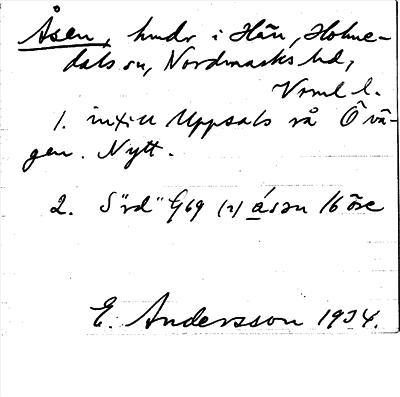 Åsen, hmdr i Hån, Holme-
dals sn, Nordmarks hd,
Vrml l.
1. intill Uppsals rå Ö vä-
gen. Nytt.
2. S"rd" G69 (2) åsan 16 öre
E. Andersson 1934.